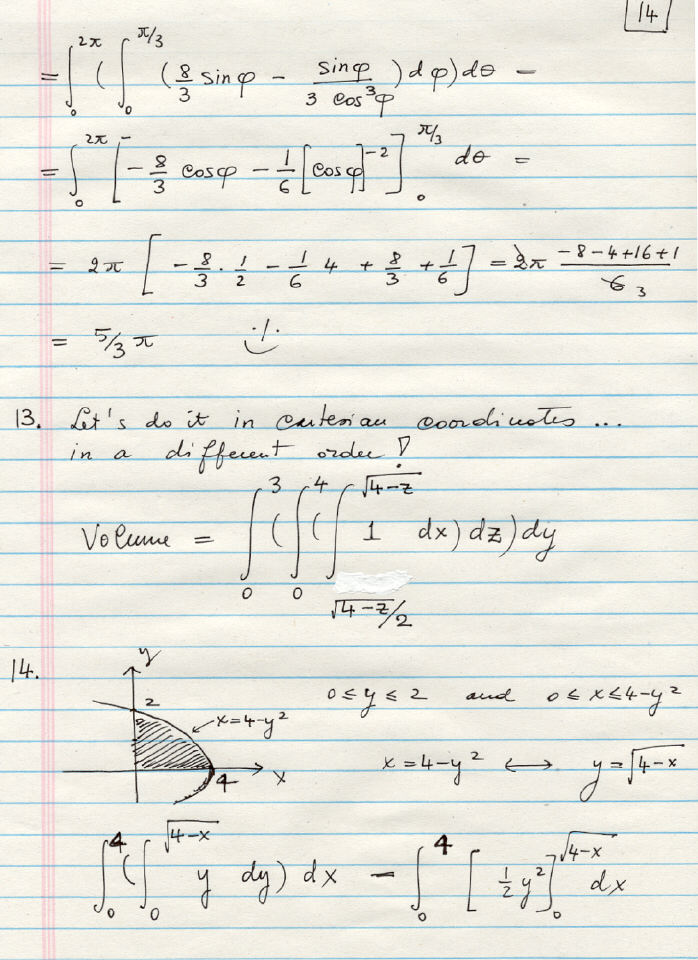 14
= ∫₀^{2π} ( ∫₀^{π/3} ( 8/3 sin φ − sin φ / 3 cos³ φ ) d φ ) dθ −
= ∫₀^{2π} [ − 8/3 cos φ − 1/6 [cos φ]^{−2} ]₀^{π/3} dθ =
= 2π [ − 8/3 · 1/2 − 1/6 4 + 8/3 + 1/6 ] = 2π (−8−4+16+1)/6 3
= 5/3 π
13. Let's do it in cartesian coordinates ...
in a different order !
Volume = ∫₀^3 ( ∫₀^4 ( ∫_{√(4−z)/2}^{√(4−z)} 1 dx) dz) dy
14.
y
2
x=4−y²
4
x
0 ≤ y ≤ 2 and 0 ≤ x ≤ 4−y²
x = 4−y² ⟷ y = √(4−x)
∫₀^4 ( ∫₀^{√(4−x)} y dy) dx − ∫₀^4 [ 1/2 y² ]₀^{√(4−x)} dx